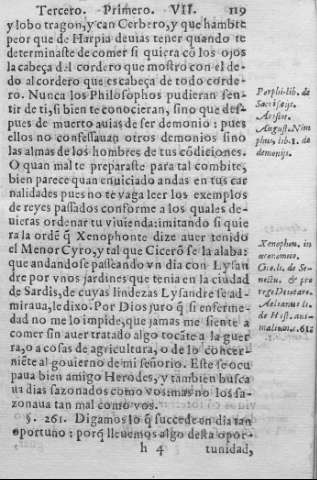 Tercero. Primero. VII. 119
y lobo tragon, y can Cerbero, y que hambre
peor que de Harpia deuias tener quando te
determinaste de comer si quiera cõ los ojos
la cabeça del cordero que mostro con el de-
do al cordero que es cabeça de todo corde-
ro. Nunca los Philosophos pudieran sen-
tir de ti, si bien te conocieran, sino que des-
pues de muerto auias de ser demonio: pues
ellos no confessauan otros demonios sino
las almas de los hombres de tus cõdiciones.
O quan mal te preparaste para tal combite,
bien parece quan enuiciado andas en tus car
nalidades pues no te vaga leer los exemplos
de reyes passados conforme a los quales de-
uieras ordenar tu viuienda: imitando si quie
ra la ordẽ q̃ Xenophonte dize auer tenido
el Menor Cyro, y tal que Cicerõ se la alaba:
que andandose passeando vn dia con Lysan
dre por vnos jardines que tenia en la ciudad
de Sardis, de cuyas lindezas Lysandre se ad-
miraua, le dixo. Por Dios juro q̃ si enferme-
dad no me lo impide, que jamas me siente a
comer sin auer tratado algo tocãte a la guer
ra, o a cosas de agricultura, o de lo concer-
niẽte al gouierno de mi señorio. Este se ocu
paua bien amigo Herodes, y tambien busca
ua dias sazonados como vos: mas no los sa-
zonaua tan mal como vos.
§. 261. Digamos lo q̃ succede en dia tan
oportuno: porq̃ lleuemos algo desta opor-
h 4 tunidad,
Porphi. lib. de
August. Nim
phus, lib. 1. de
demonijs.
Xenophon. in
œconomic.
Cice. li. de Se-
nectu. & pro
rege Deiotaro.
Aelianus li.
de Hist. ani-
malium c.